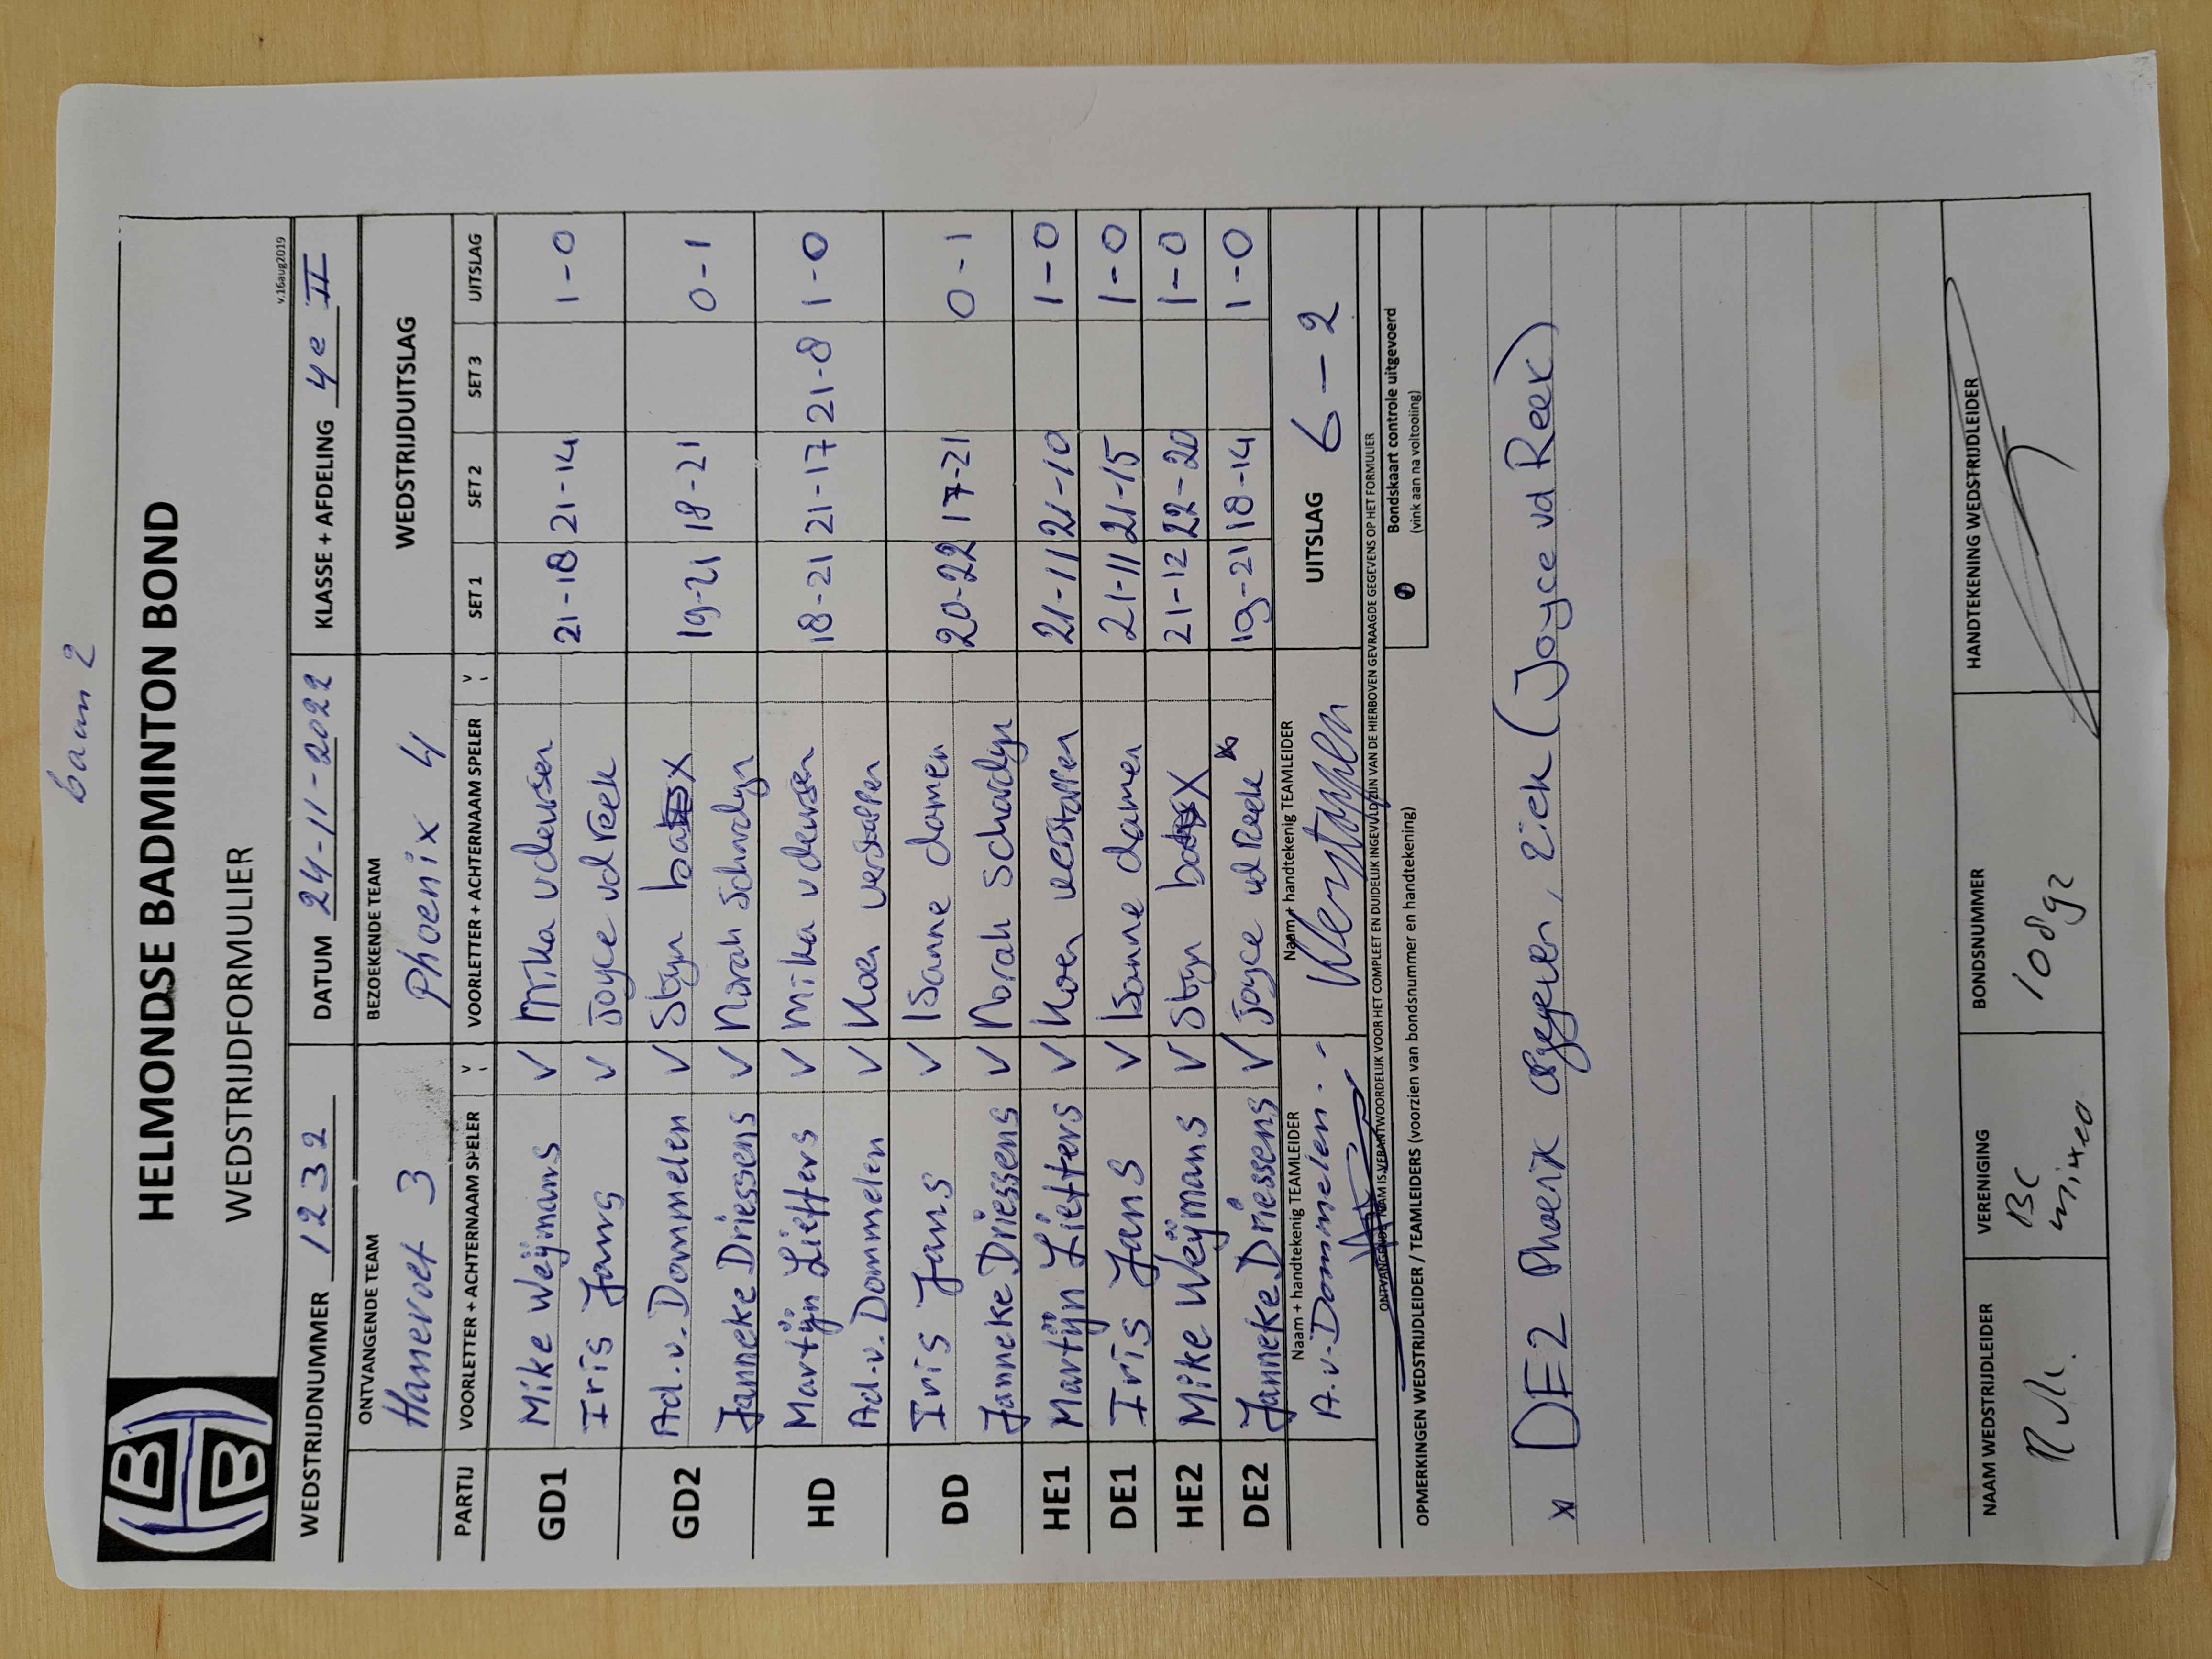 baan 2
HELMONDSE BADMINTON BOND
WEDSTRIJDFORMULIER
v.16aug2019
WEDSTRIJDNUMMER 1232 DATUM 24-11-2022 KLASSE + AFDELING 4e II
ONTVANGENDE TEAM BEZOEKENDE TEAM WEDSTRIJDUITSLAG
Hanevoet 3 Phoenix 4
PARTIJ VOORLETTER + ACHTERNAAM SPELER v VOORLETTER + ACHTERNAAM SPELER v SET 1 SET 2 SET 3 UITSLAG
GD1 Mike Weijmans v Mika vdeursen 21-18 21-14 1-0
Iris Jans v Joyce vd reek
GD2 Ad.v.Dommelen v Stijn 19-21 18-21 0-1
Janneke Driessens v Norah Schardijn
HD Martijn Lieffers v Mika vdeursen 18-21 21-17 21-8 1-0
Ad.v.Dommelen v Koen verstappen
DD Iris Jans v Isanne damen 20-22 17-21 0-1
Janneke Driessens v Norah Schardijn
HE1 Martijn Lieffers v Koen verstappen 21-11 21-10 1-0
DE1 Iris Jans v Isanne damen 21-11 21-15 1-0
HE2 Mike Weijmans v Stijn 21-12 22-20 1-0
DE2 Janneke Driessens v Joyce vd Reek * 19-21 18-14 1-0
Naam + handtekenig TEAMLEIDER Naam + handtekenig TEAMLEIDER UITSLAG 6-2
A.v.Dommelen Verstappen
ONTVANGENDE TEAM IS VERANTWOORDELIJK VOOR HET COMPLEET EN DUIDELIJK INGEVULD ZIJN VAN DE HIERBOVEN GEVRAAGDE GEGEVENS OP HET FORMULIER
OPMERKINGEN WEDSTRIJDLEIDER / TEAMLEIDERS (voorzien van bondsnummer en handtekening)
Bondskaart controle uitgevoerd
(vink aan na voltooiing)
* DE2 Phoenix opgegeven, ziek (Joyce vd Reek)
NAAM WEDSTRIJDLEIDER VERENIGING BONDSNUMMER HANDTEKENING WEDSTRIJDLEIDER
BC 10892
Mixed